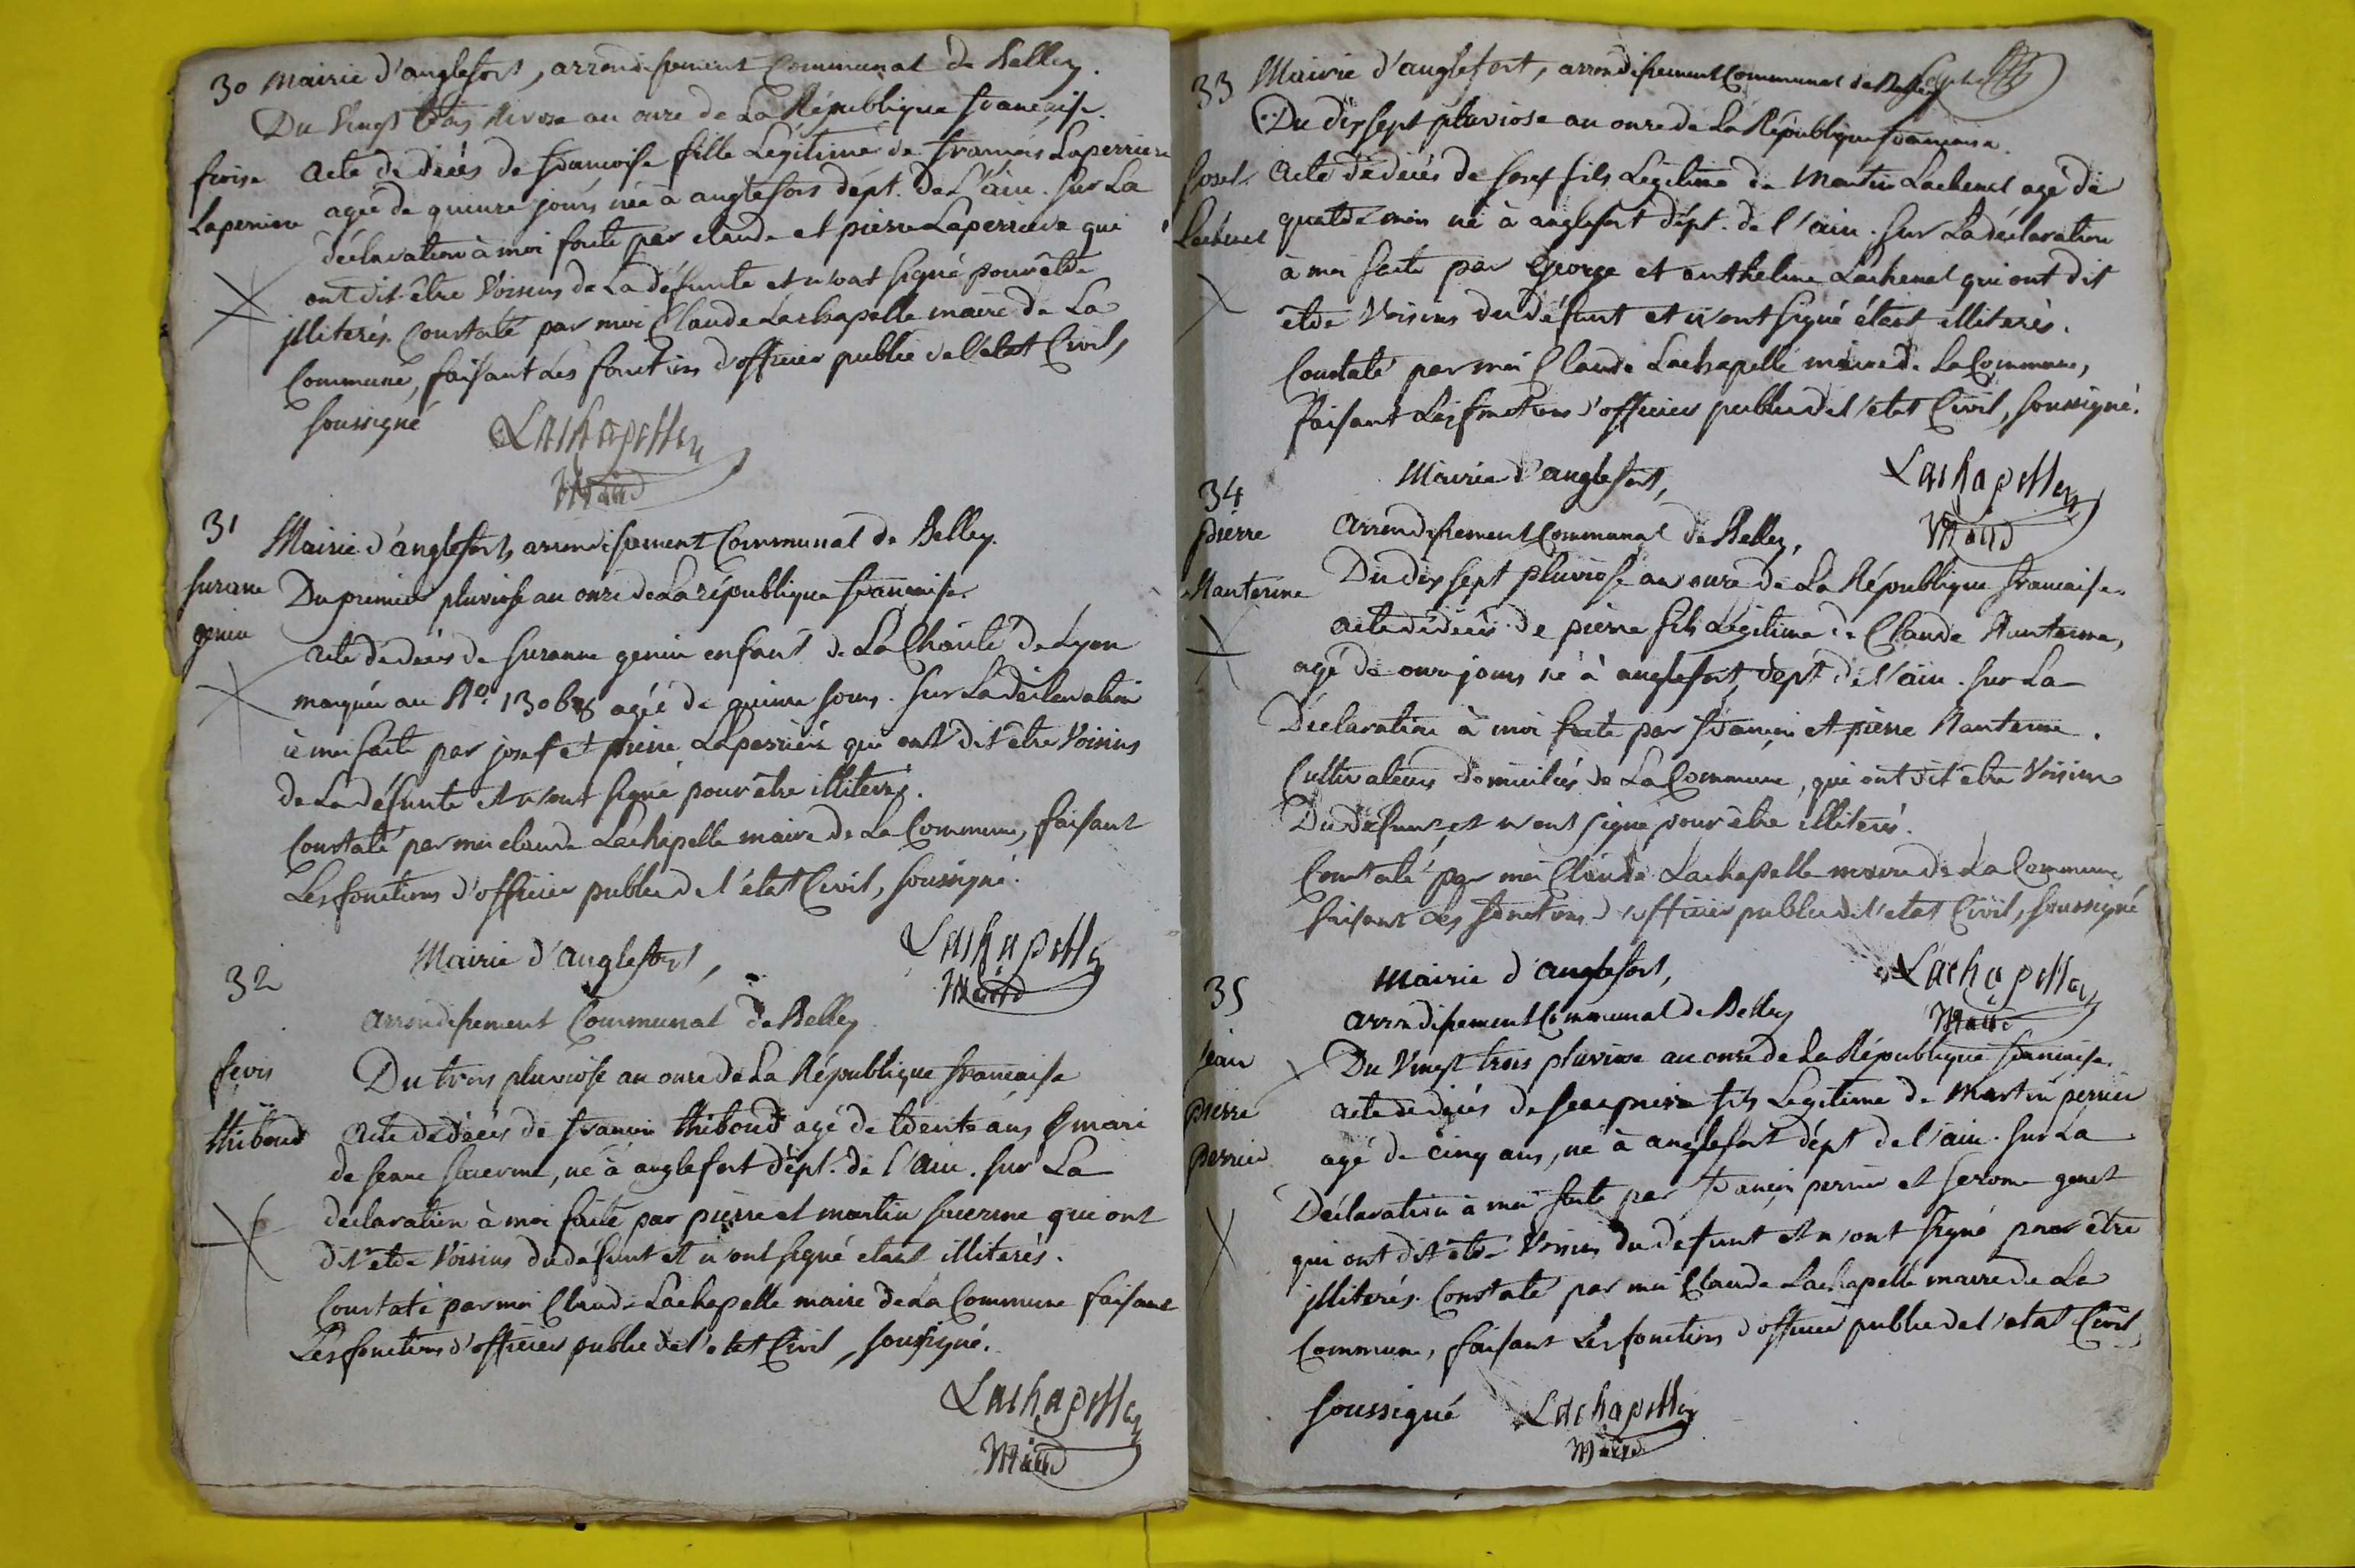 30 Mairie d'anglefort, arrondissement Communal de Belley.
Du Vingt trois Nivose an onze de La République française.
froise
Laperriere
acte de décès de françoise fille Légitime de françois Laperriere
agée de quinze jours née à anglefort dépt. De L'ain. sur La
déclaration à moi faite par claude et pierre Laperriere qui
ont dit être Voisins de La défunte et n'ont signé pour être
illiterés. Constaté par moi Claude Lachapelle maire de La
Commune, faisant Les fonctions d'officier public de l'état Civil,
soussigné
Lachapelle
Maire
31
suzane
genin
Mairie d'anglefort, arrondissement Communal de Belley.
Du premier pluviose an onze de La république française.
acte de décès de suzanne genin enfant de La Charité de Lyon
marquée au N°. agée de quinze jours. sur La déclaration
à moi faite par josef et pierre Laperriere qui ont dit être Voisins
de La défunte et n'ont signé pour être illiterés.
Constaté par moi claude Lachapelle maire de La Commune, faisant
Les fonctions d'officier public de l'état Civil, soussigné.
Lachapelle
Maire
32
Mairie d'anglefort,
arrondissement Communal de Belley
fcois
thiboud
Du trois pluviose an onze de La République française
acte de décès de françois thiboud agé de trente ans mari
de jenne juvernne, né à anglefort dépt. de l'ain. sur La
déclaration à moi faite par pierre et martin qui ont
dit être Voisins du défunt et n'ont signé étant illiterés.
Constaté par moi Claude Lachapelle maire de La Commune faisant
Les fonctions d'officier public de l'état Civil, soussigné.
Lachapelle
Maire
33 Mairie d'anglefort, arrondissement Communal de Belley
Du dix sept pluviose an onze de La République française.
josef
Lachenel
acte de décès de josef fils Légitime de Martin Lachenel agé de
quatre mois né à anglefort dépt. de l'ain. sur La déclaration
à moi faite par George et anthelme Lachenel qui ont dit
être Voisins du défunt et n'ont signé étant illiterés.
Constaté par moi Claude Lachapelle maire de La Commune,
faisant Les fonctions d'officier public de l'état Civil, soussigné.
Lachapelle
Maire
34
pierre
Nanterme
Mairie d'anglefort,
arrondissement Communal de Belley,
Du dix sept pluviose an onze de La République française.
acte de décès de pierre fils Légitime de Claude Nanterme,
agé de onze jours né à anglefort, dépt. de l'ain. sur La
Déclaration à moi faite par françois et pierre Nanterme.
Cultivateurs domiciliés de La Commune, qui ont dit être Voisins
Du défunt et n'ont signé pour être illiterés.
Constaté par moi Claude Lachapelle maire de La Commune
faisant Les fonctions d'officier public de l'état Civil, soussigné
Lachapelle
Maire
35
jean
pierre
perrier
Mairie d'anglefort,
arrondissement Communal de Belley
Du Vingt trois pluviose an onze de La République française.
acte de décès de jean pierre fils Légitime de Martin perrier
agé de cinq ans, né à anglefort dépt de l'ain. sur La
Déclaration à moi faite par françois perrier et jerome genet
qui ont dit être Voisins du défunt et n'ont signé pour être
illiterés. Constaté par moi Claude Lachapelle maire de La
Commune, faisant Les fonctions d'officier public de l'état Civil,
soussigné
Lachapelle
Maire